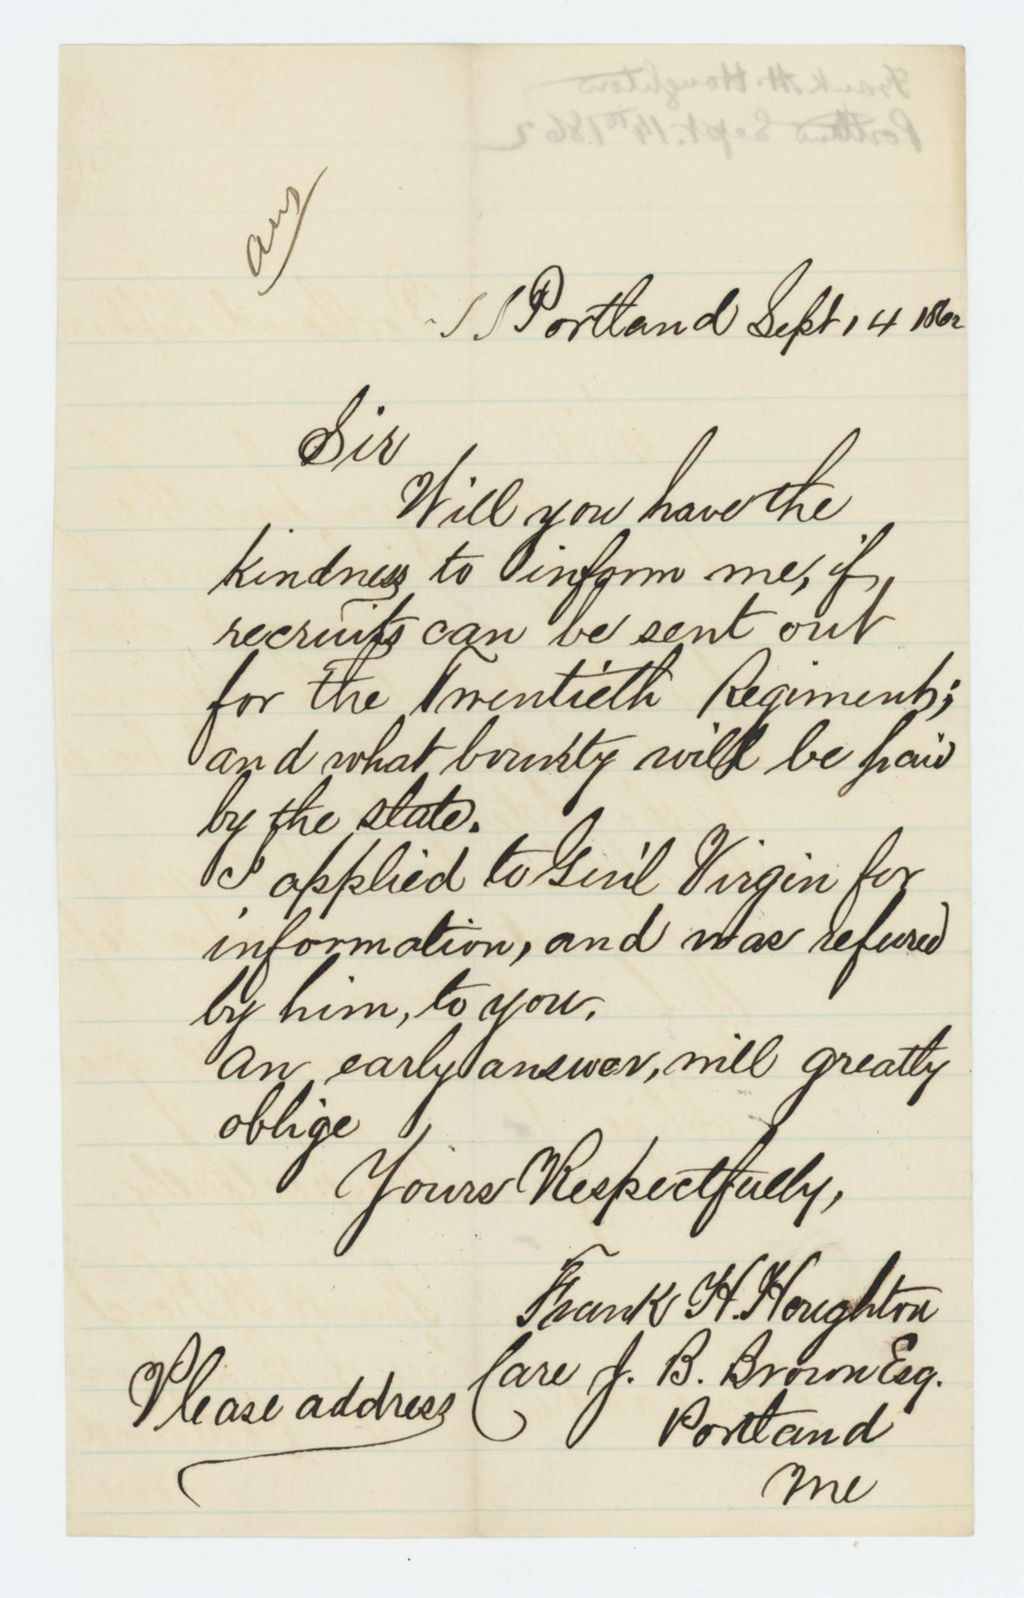 Frank H. Houghton
Portland Sept. 14th 1862
ans
Portland Sept 14 1862
Sir
Will you have the
kindness to inform me, if
recruits can be sent out
for the Twentieth Regiment;
and what bounty will be paid
by the state.
I applied to Gen'l Virgin for
information, and was refured
by him, to you.
An early answer, will greatly
oblige
Yours Respectfully,
Frank H. Houghton
Please address Care J. B. Brown Esq.
Portland
Me